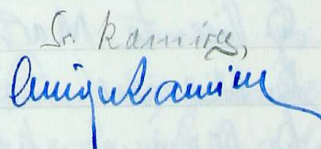 Sr. Ramírez,
Enrique Ramírez